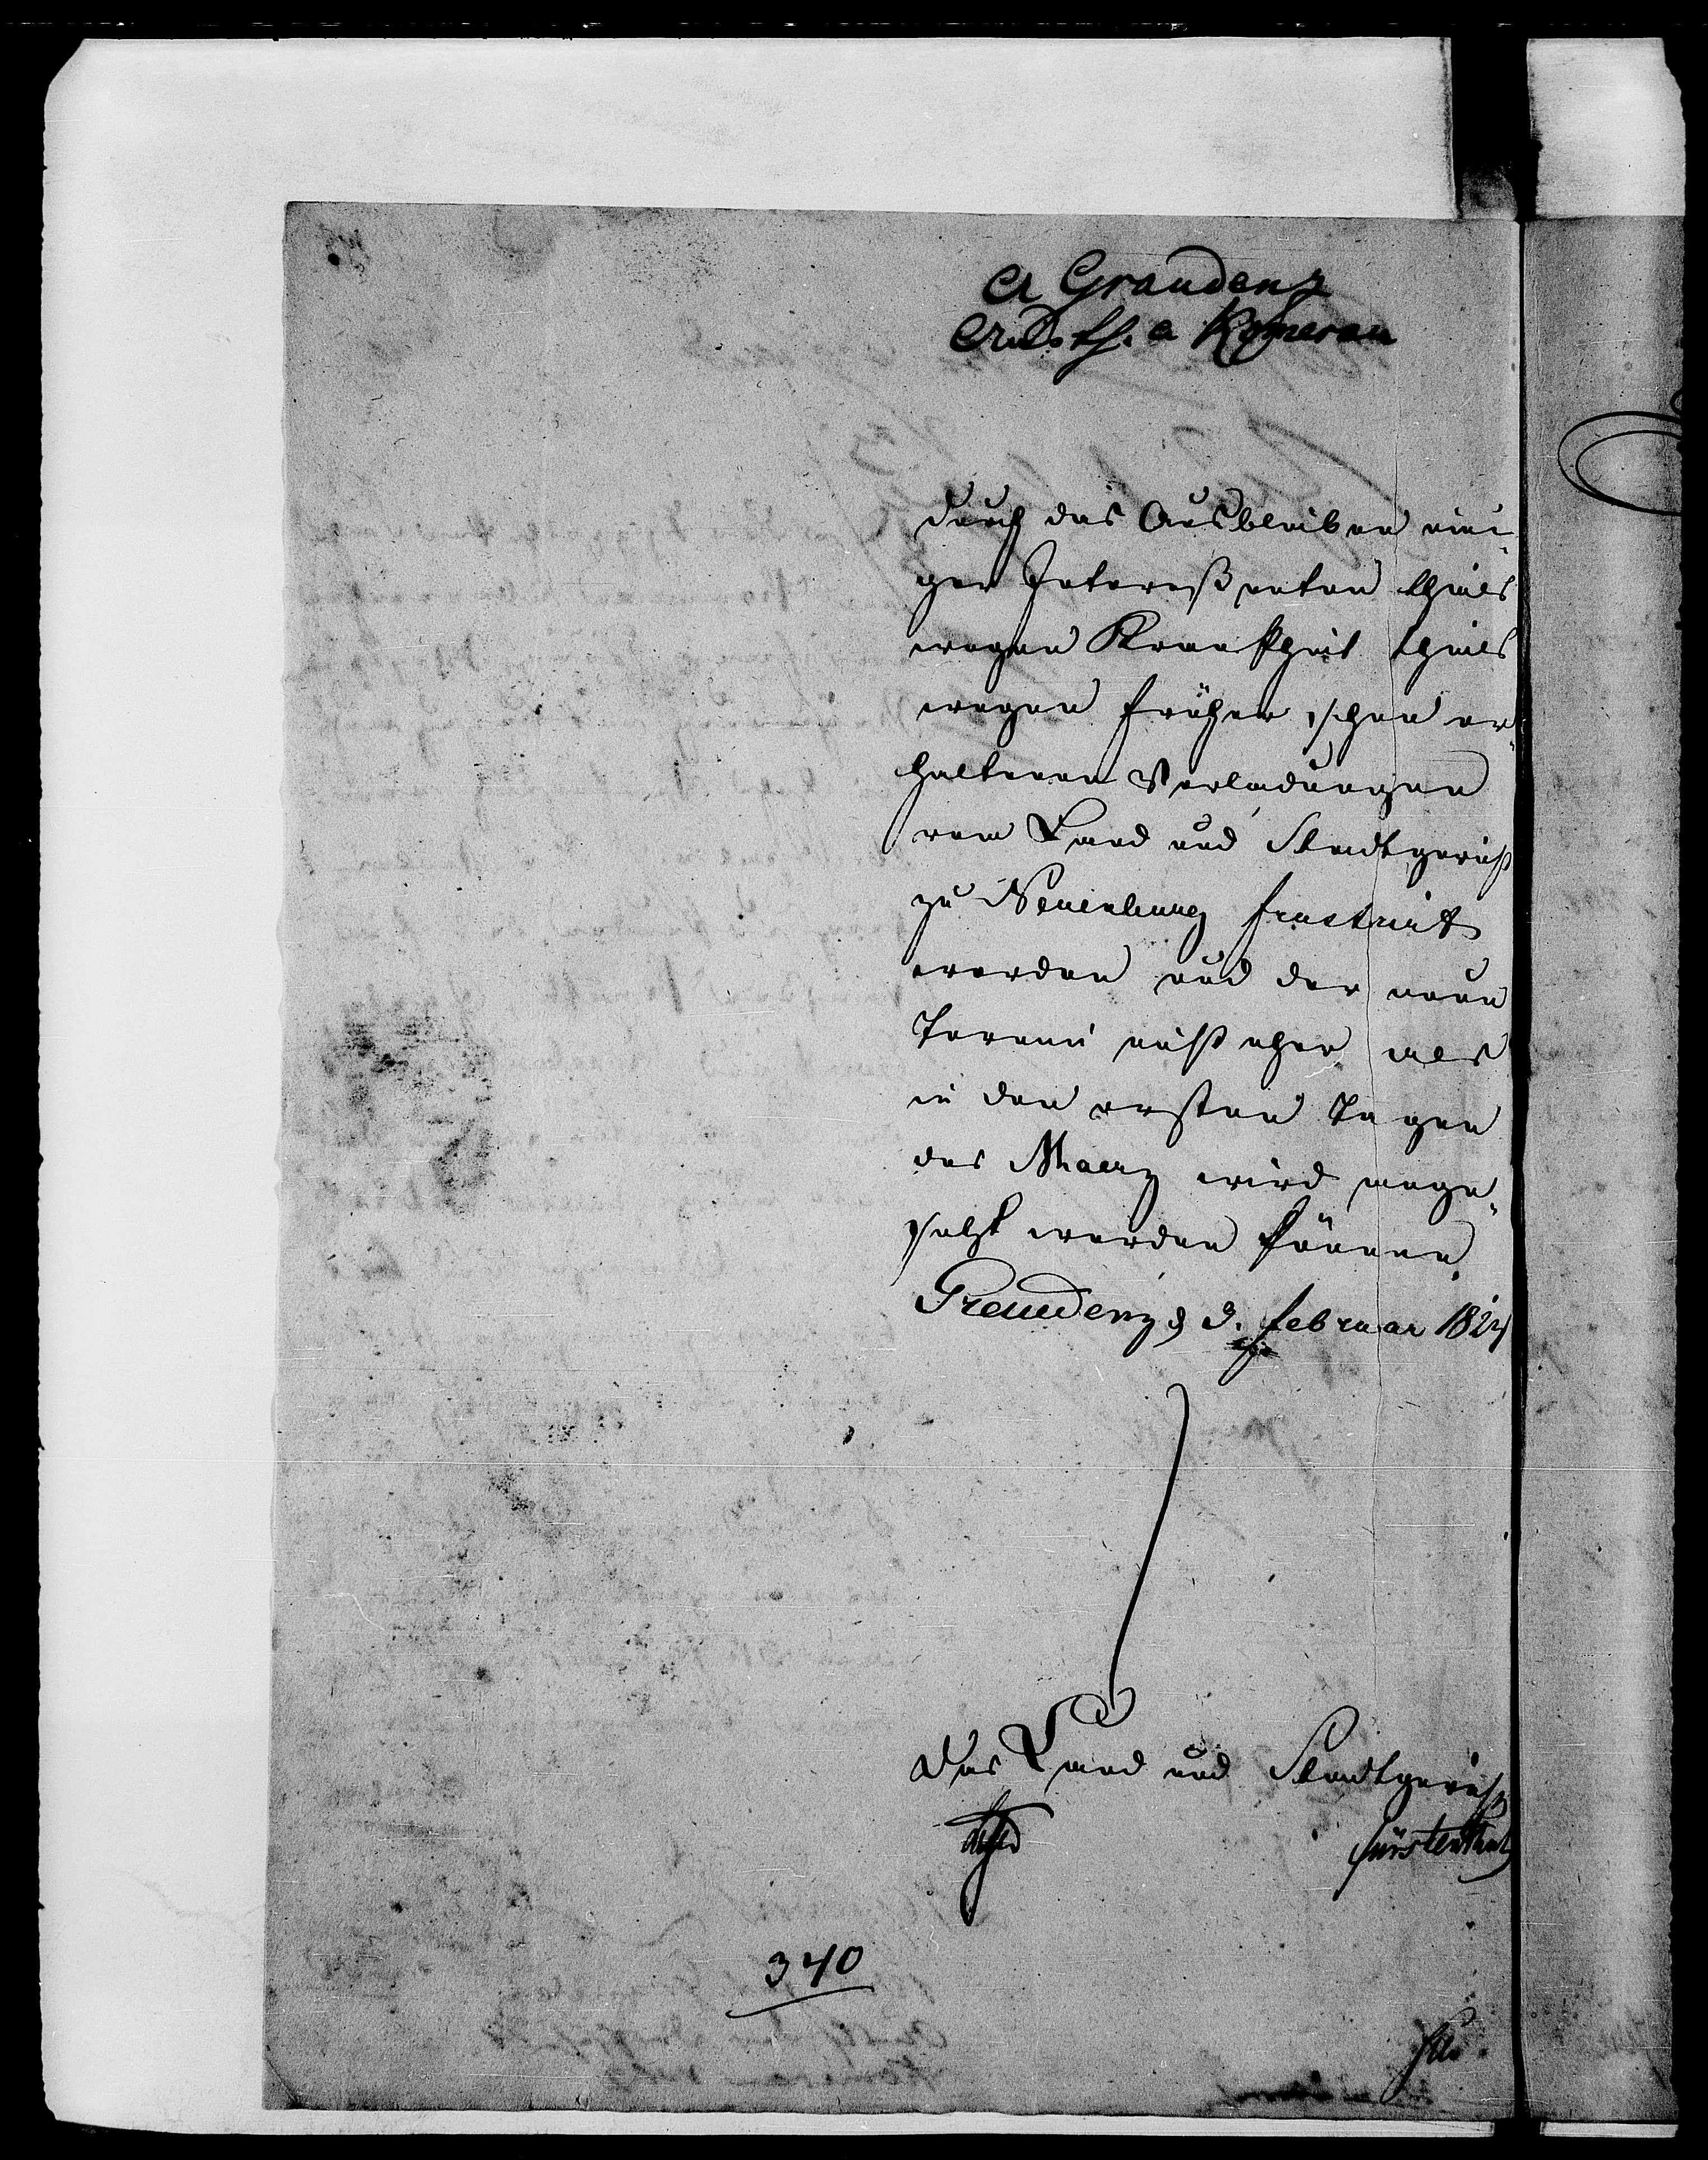 A Graudenz
durch das Ausbleiben eini-
ger Intereßenten theils
wegen Krankheit theils
wegen früher schon er-
haltenen Vorladungen
vom Land und Stadtgericht
zu Neuenburg frustrirt
worden und der neue
Termin nicht eher als
in den ersten Tagen
des Maerz wird ange-
setzt werden können.
Graudenz d 3. Februar 1824
Das Land und Stadtgericht
340